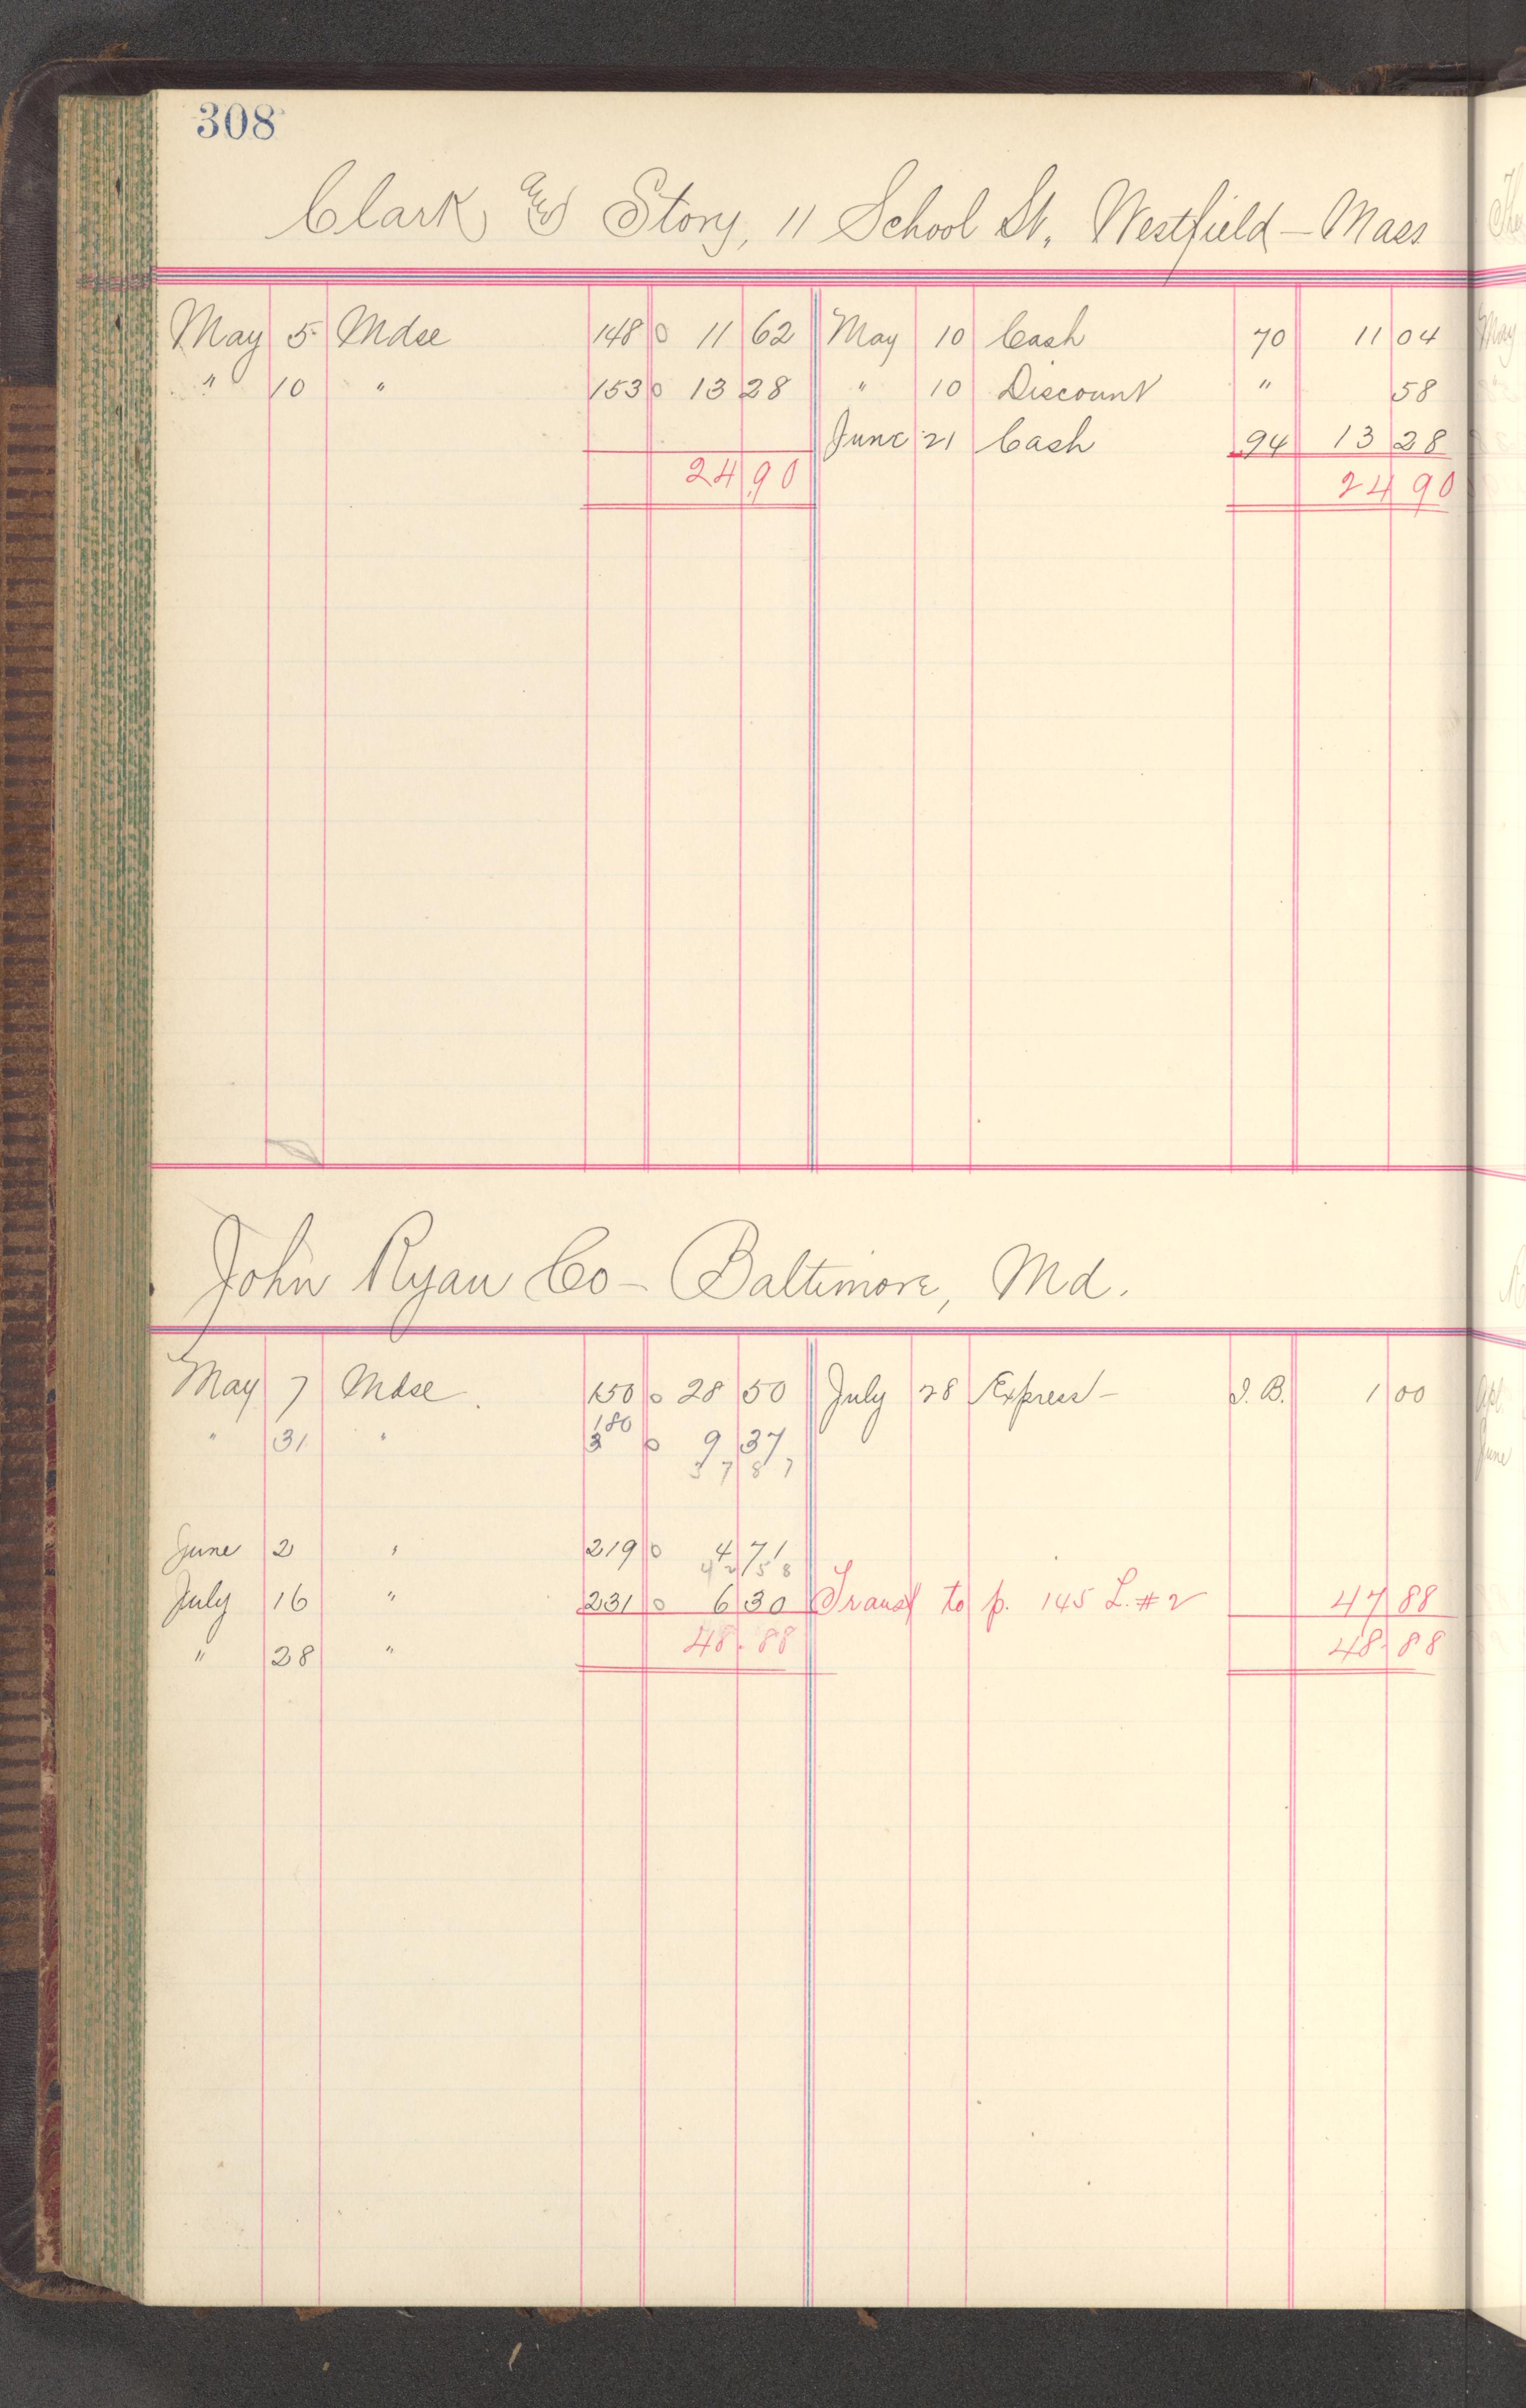 308
Clark and Story, 11 School St. Westfield - Mass
May 5 Mdse 148 0 11 62 May 10 Cash 70 11 04
" 10 " 153 0 13 28 " 10 Discount " 58
June 21 Cash 94 13 28
24 90 24 90
John Ryan Co - Baltimore, Md.
May 7 Mdse 150 0 28 50 July 28 Express - J. B. 1 00
" 31 " 180 0 9 37
37 87
June 2 " 219 0 4 71
42 58
July 16 " 231 0 6 30 Transf to p. 145 L. #2 47 88
" 28 " 48.88 48.88